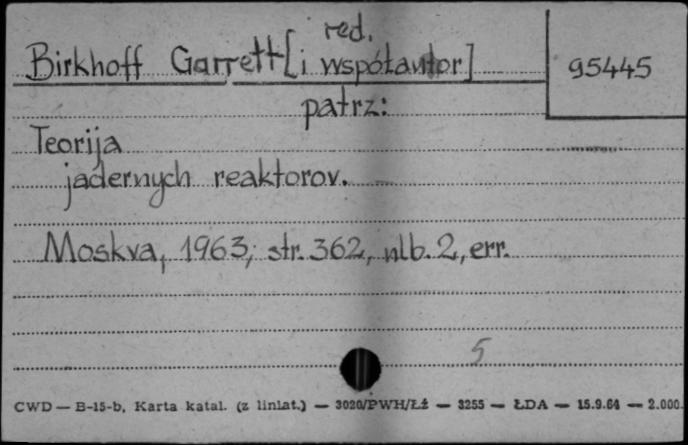 red.
Birkhoff Garrett [i współautor]
95445
patrz:
Teorija
jadernych reaktorov.
Moskva, 1963, str. 362, nlb. 2, err.
5
CWD — B-15-b, Karta katal. (z liniat.) — 3020/PWH/Łź — 3255 — ŁDA — 15.9.64 — 2.000.